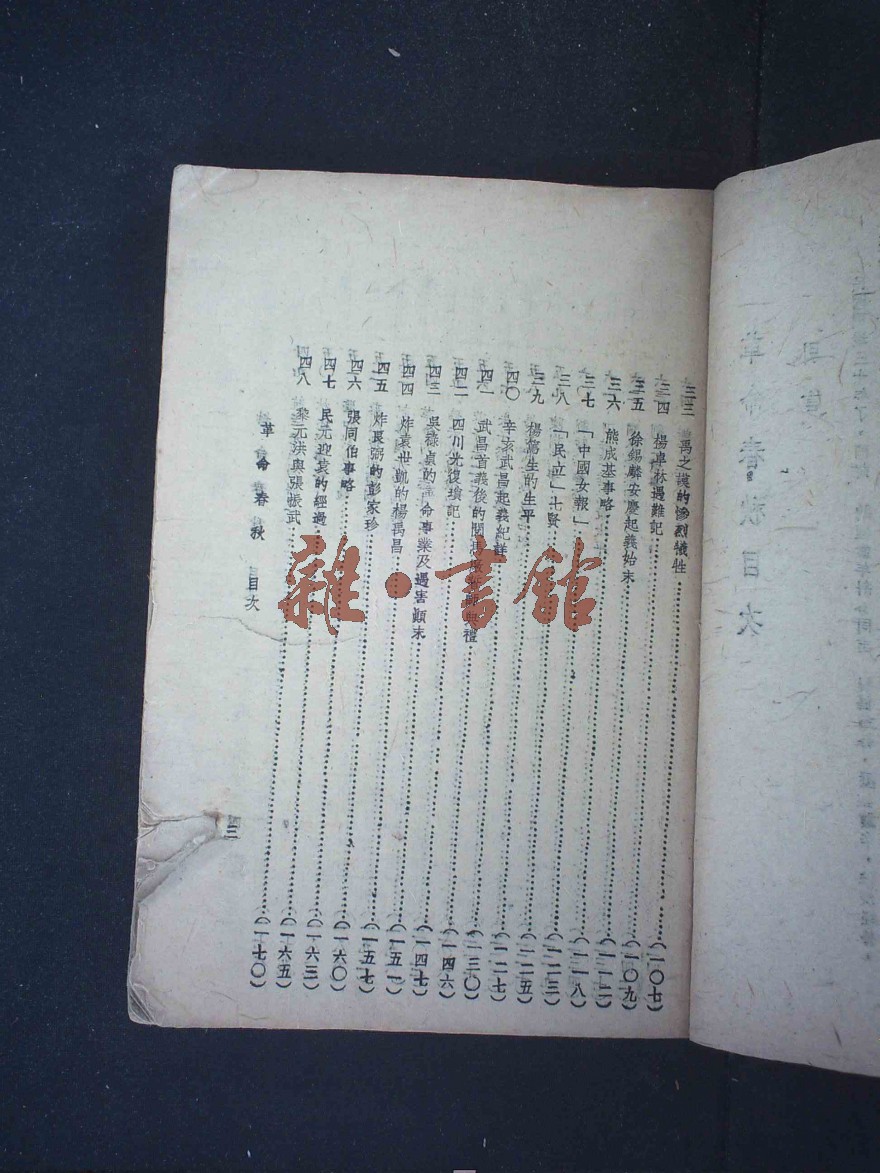 三三 禹之謨的慘烈犧牲……(一〇七)
三四 楊卓林遇難記……(一〇九)
三五 徐錫麟安慶起義始末……(一一二)
三六 熊成基事略……(一一八)
三七 「中國女報」……(一二三)
三八 「民立」七賢……(一二五)
三九 楊篤生的生平……(一二七)
四〇 辛亥武昌起義紀詳……(一三〇)
四一 武昌首義後的閱馬廠誓師典禮……(一四六)
四二 四川光復瑣記……(一四七)
四三 吳祿貞的革命事業及遇害顛末……(一五一)
四四 炸袁世凱的楊禹昌……(一五七)
四五 炸良弼的彭家珍……(一六〇)
四六 張同伯事略……(一六三)
四七 民元迎袁的經過……(一六五)
四八 黎元洪與張振武……(一七〇)
革命春秋 目次
三
雜·書館